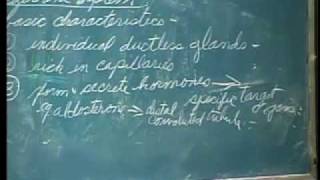 basic characteristics -
individual ductless glands -
② rich in capillaries
③ form & secrete hormones →
specific target
eg aldosterone → distal
convoluted tubule -